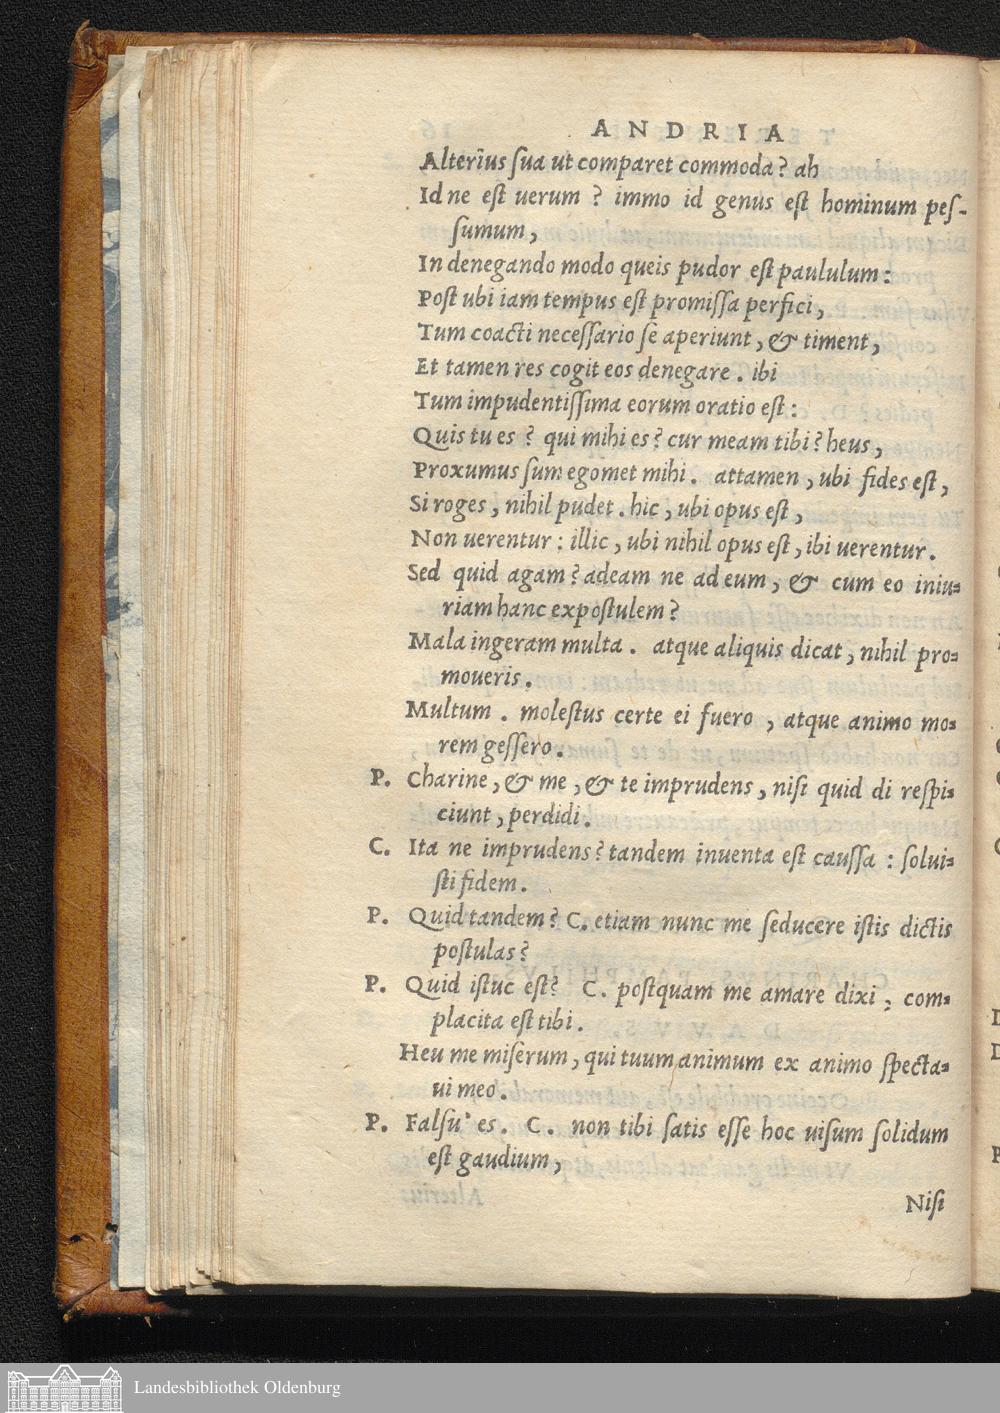 ANDRIA
Alterius ſua ut comparet commoda? ah
Id ne eſt uerum? immo id genus eſt hominum peſ-
ſumum,
In denegando modo queis pudor eſt paululum:
Poſt ubi iam tempus eſt promiſſa perfici,
Tum coacti neceſſario ſe aperiunt, & timent,
Et tamen res cogit eos denegare. ibi
Tum impudentiſſima eorum oratio eſt:
Quis tu es? qui mihi es? cur meam tibi? heus,
Proxumus ſum egomet mihi. attamen, ubi fides eſt,
Si roges, nihil pudet. hic, ubi opus eſt,
Non uerentur: illic, ubi nihil opus eſt, ibi uerentur.
Sed quid agam? adeam ne ad eum, & cum eo iniu-
riam hanc expoſtulem?
Mala ingeram multa. atque aliquis dicat, nihil pro-
moueris.
Multum. moleſtus certe ei fuero, atque animo mo-
rem geſſero.
P. Charine, & me, & te imprudens, niſi quid di reſpi-
ciunt, perdidi.
C. Ita ne imprudens? tandem inuenta eſt cauſſa: ſolui-
ſti fidem.
P. Quid tandem? C. etiam nunc me ſeducere iſtis dictis
poſtulas?
P. Quid iſtuc eſt? C. poſtquam me amare dixi, com-
placita eſt tibi.
Heu me miſerum, qui tuum animum ex animo ſpecta-
ui meo.
P. Falſu' es. C. non tibi ſatis eſſe hoc uiſum ſolidum
eſt gaudium,
Niſi
Landesbibliothek Oldenburg